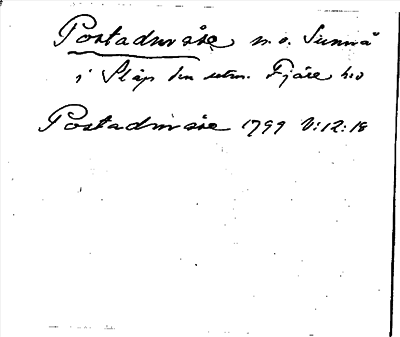 Postadmåse n.o. Sunnå
i Släp sn utm. Fjäre hd
Postadmåse 1799 V:12:18